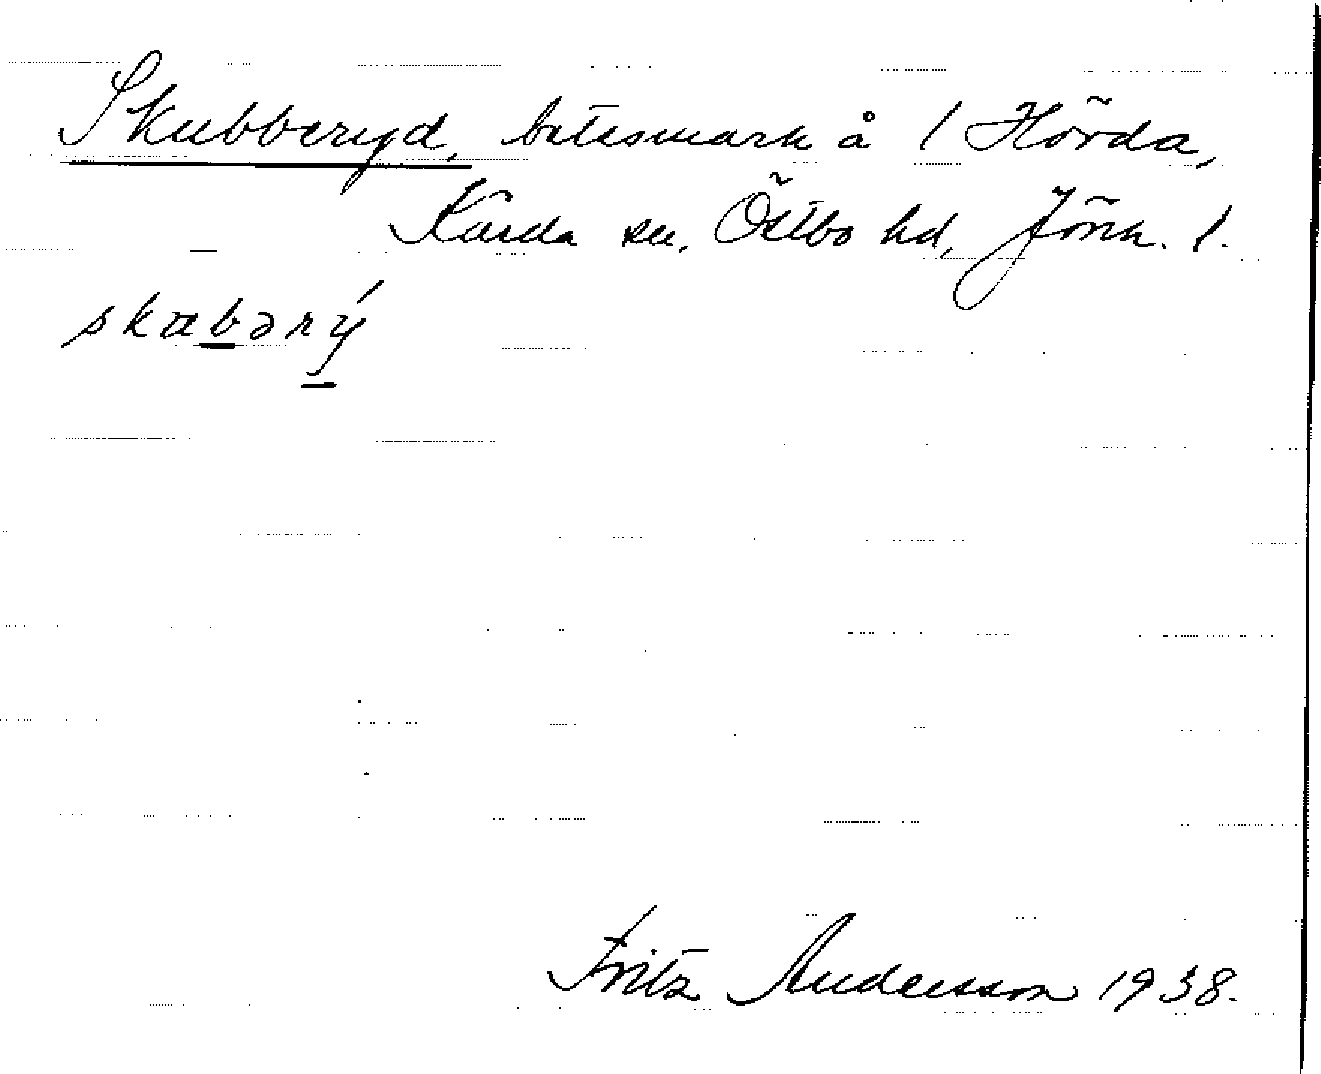 Skubberyd, betesmark å 1 Hörda,
Kärda sn, Östbo hd, Jönk. l.
skɯbərý
Fritz Andersson 1938.